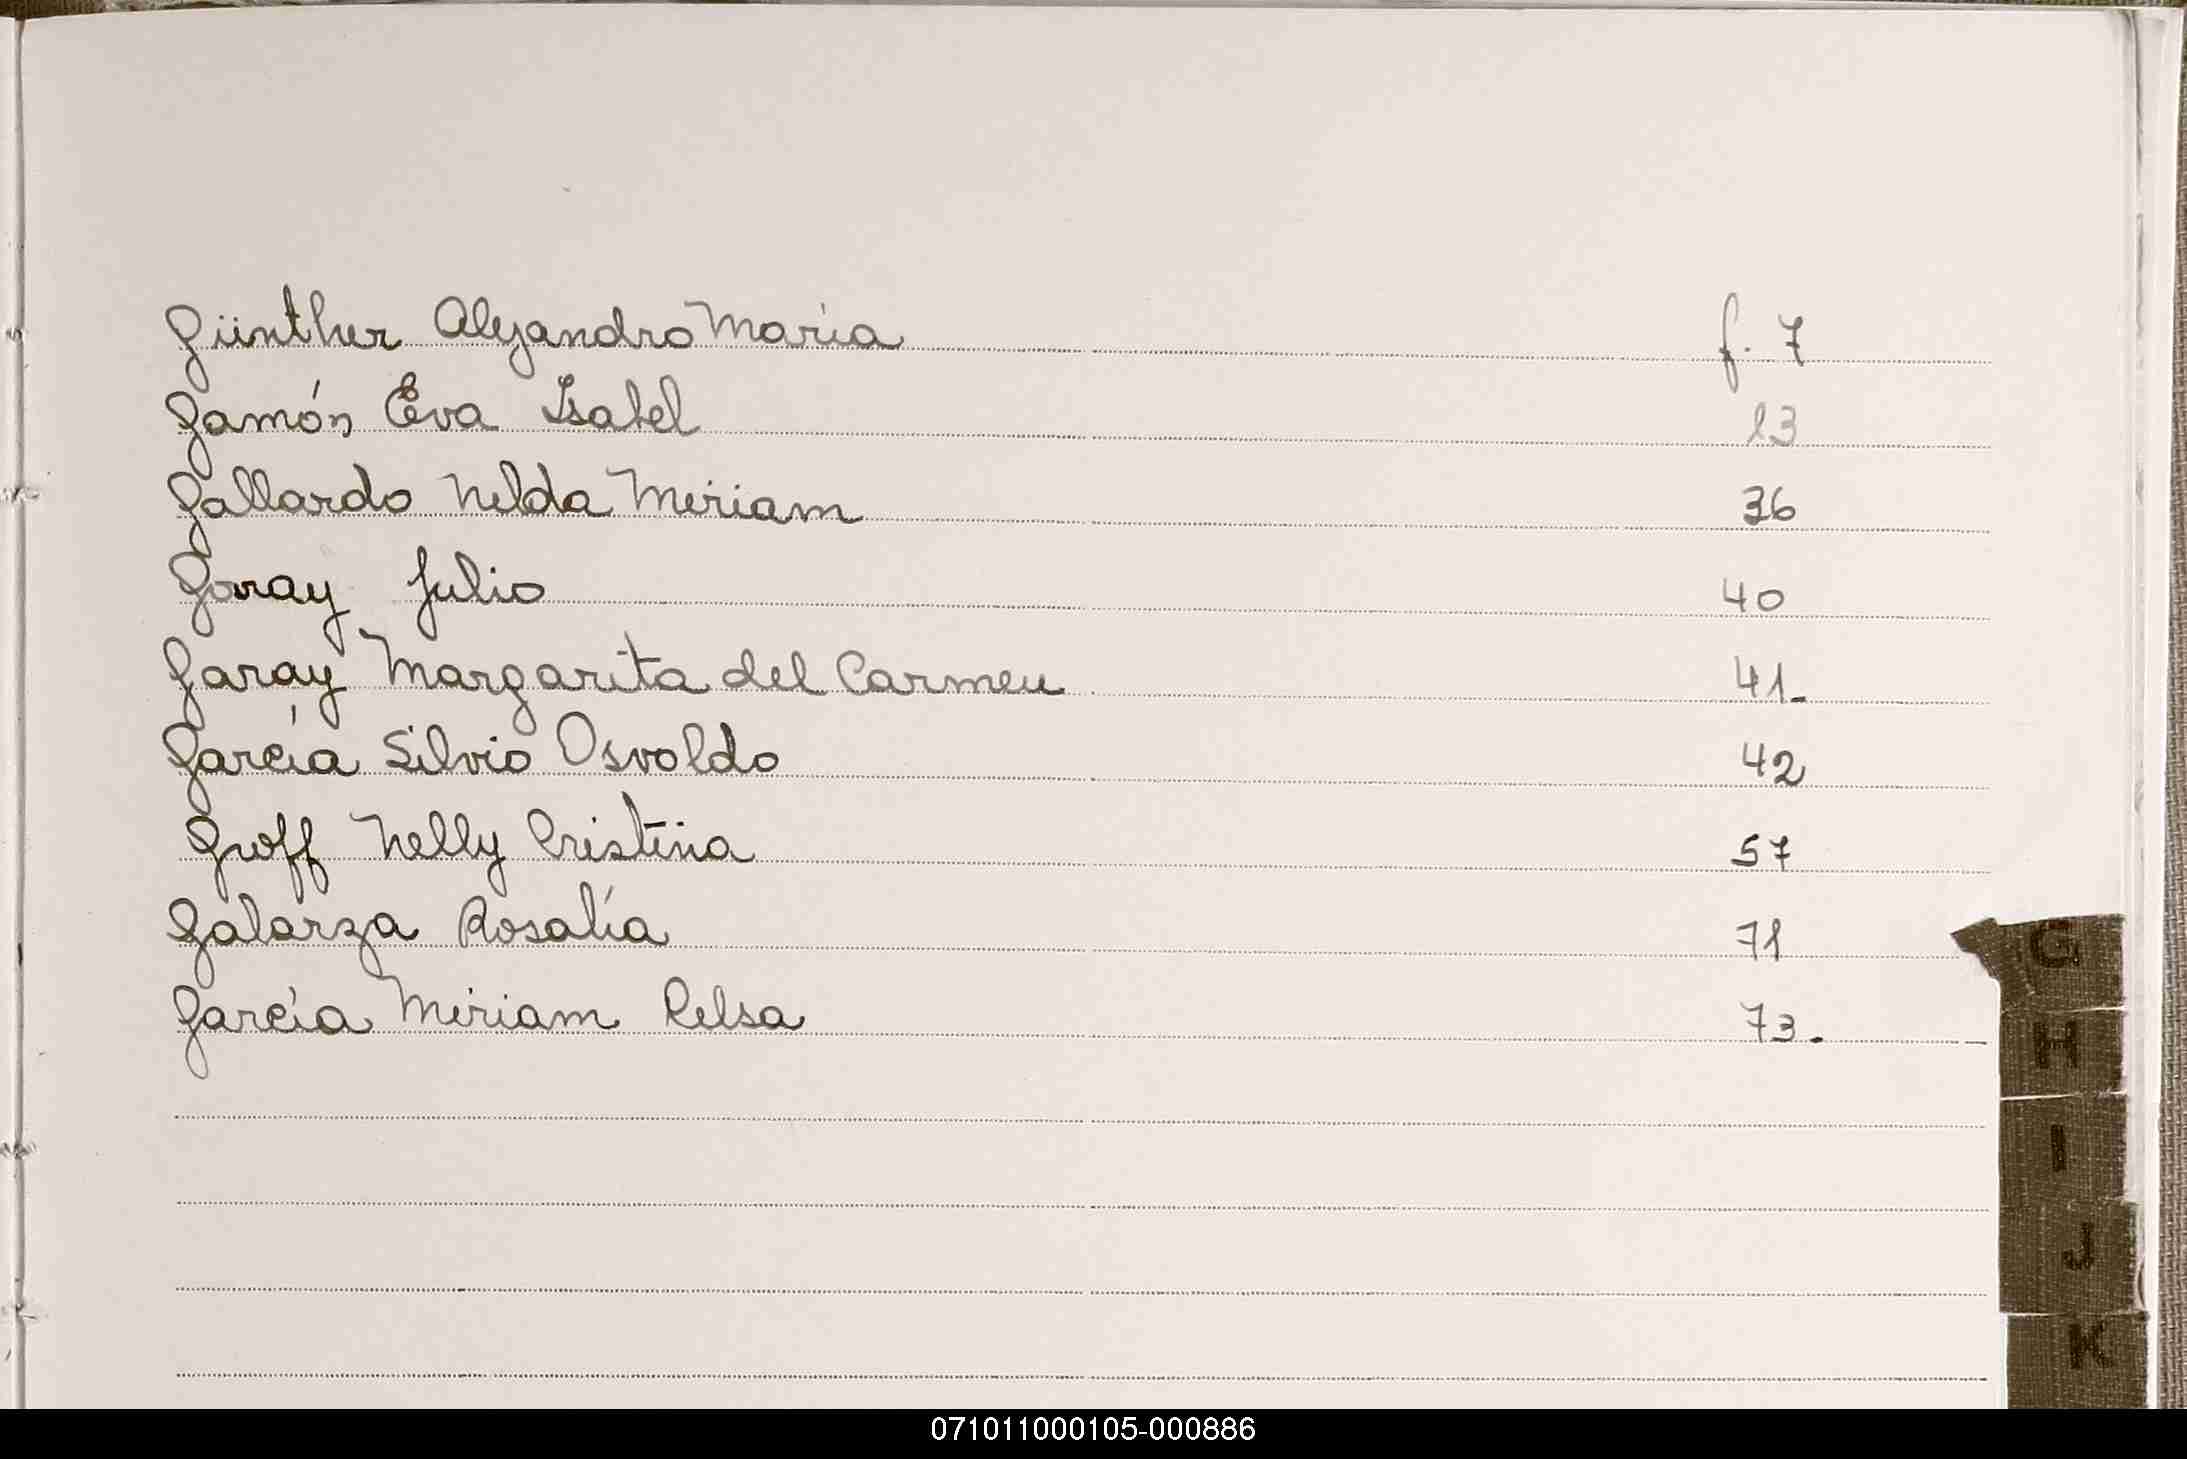 Günther Alejandro María f. 7
Gamón Eva Isabel 13
Gallardo Nelda Miriam 36
Garay Julio 40
Garay Margarita del Carmen 41.
García Silvio Osvaldo 42
Groff Nelly Cristina 57
Galarza Rosalía 71
García Miriam Celsa 73.
G
H
I
J
K
071011000105-000886